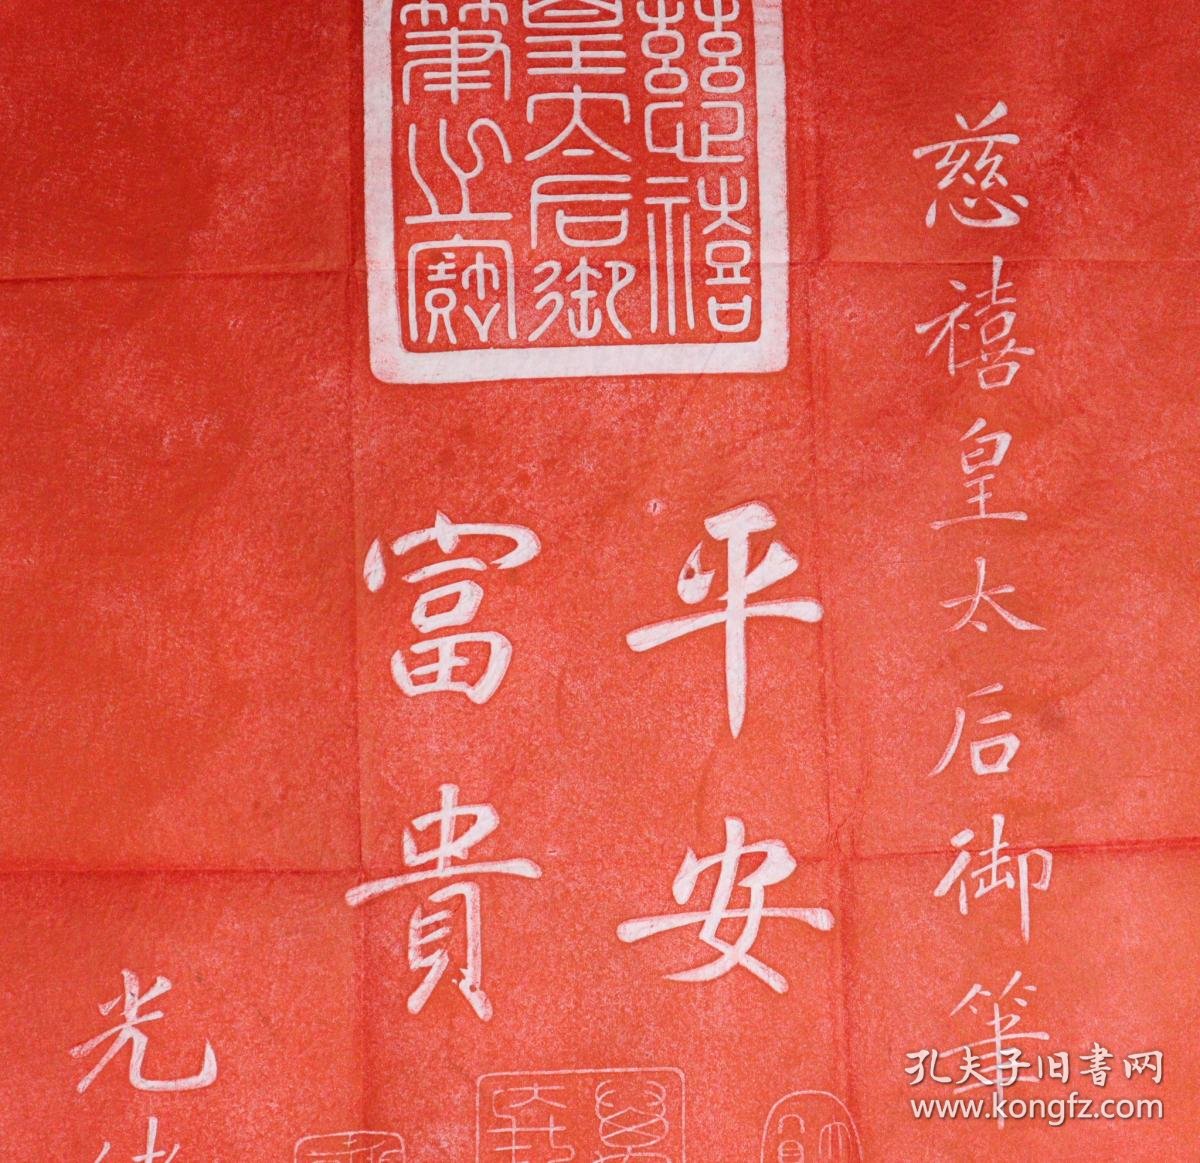 慈禧皇太后御筆
慈禧
皇太后御
筆之寶
平安
富貴
光緒
孔夫子旧書网
www.kongfz.com